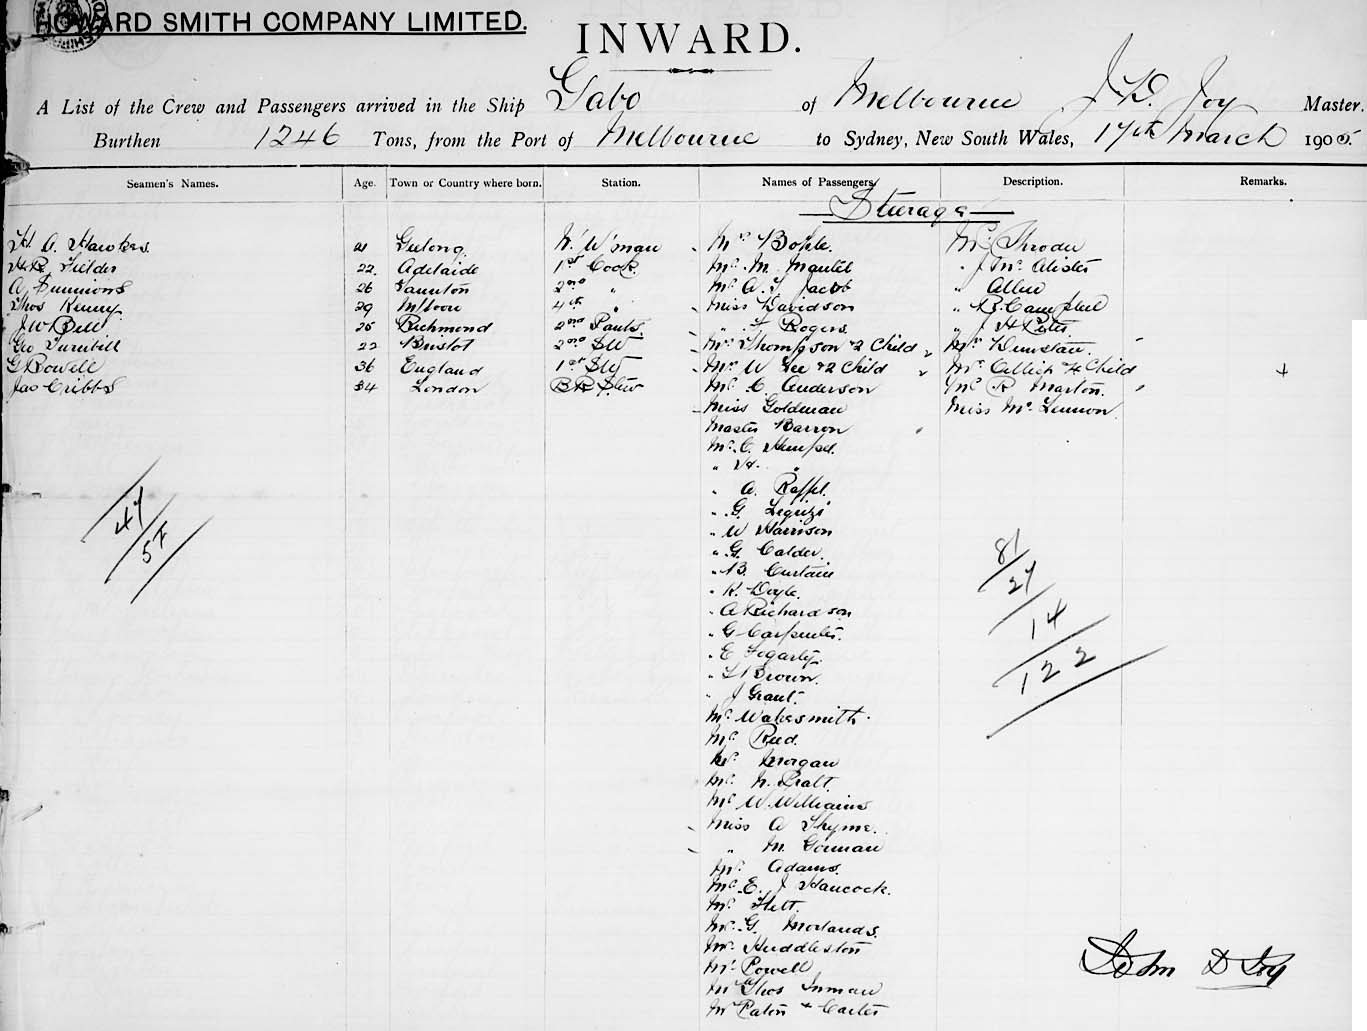 HOWARD SMITH COMPANY LIMITED.
INWARD.
A List of the Crew and Passengers arrived in the Ship Gabo of Melbourne, J. D. Joy Master.
Burthen 1246 Tons, from the Port of Melbourne to Sydney, New South Wales, 17th March 1905.
Seamen's Names. Age. Town or Country where born. Station. Names of Passengers Description. Remarks.
Steerage
H. A. Hawkes 21 Geelong. W. W'man Mr Bohle. Mr Throder
H. R. Fielder 22. Adelaide 1st Cook. Mr. M. Mantel " J Mc Alister
A Simmons 26 Taunton 2nd " Mr A. J Jacob " Allen
Thos Kenny. 29 M/bou 4th " Miss Davidson " B. Campbell
J W Bell 25 Richmond 2nd Pants. " F Rogers " J H Peter
Geo Turnbull 22 Bristol 2nd Std Mrs Thompson & 2 Child Mrs Dunstan.
G Rowell 36 England 1st Std Mrs W Lee & 2 Child Mrs Allick & 4 Child
Jas Cribbs 34 London B R Stew Mr. C. Anderson Mr R Marton.
Miss Goldman Miss Mc Lennon.
Master Barron
Mr. C. Hempel.
" H. "
" A. Raffel.
" G.
" W Harrison
" G. Calder.
" B. Curtain
" K. Doyle.
" A Richardson
" G Carpenter.
" E Fogarty.
" L Brown.
" J Grant.
Mr Wakesmith.
Mr. Reed.
Mr. Morgan
Mr. N. Pratt.
Mr W. Williams
Miss A Thyme.
" M. Gorman
Mr. Adams.
Mr. E. J Hancock.
Mr. Flett.
Mr. G. Morlands.
Mr. Huddleston
Mr Powell
Mr Thos Inman
Mr Paton & Carter
47
57
81
27
14
122
John D Joy